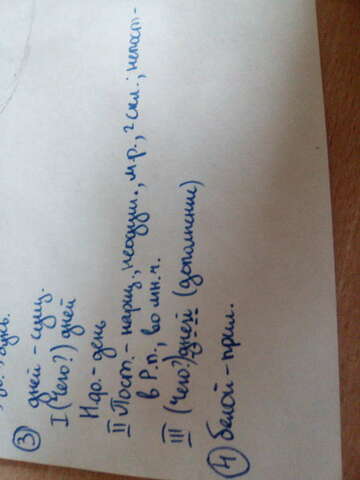 ③ дней – сущ.
I (Чего?) дней
Н.ф. – день
II Пост. – нариц., неодуш., м.р., 2 скл.; непост –
в Р.п., во мн.ч.
III (Чего?) дней (дополнение)
④ белой – прил.